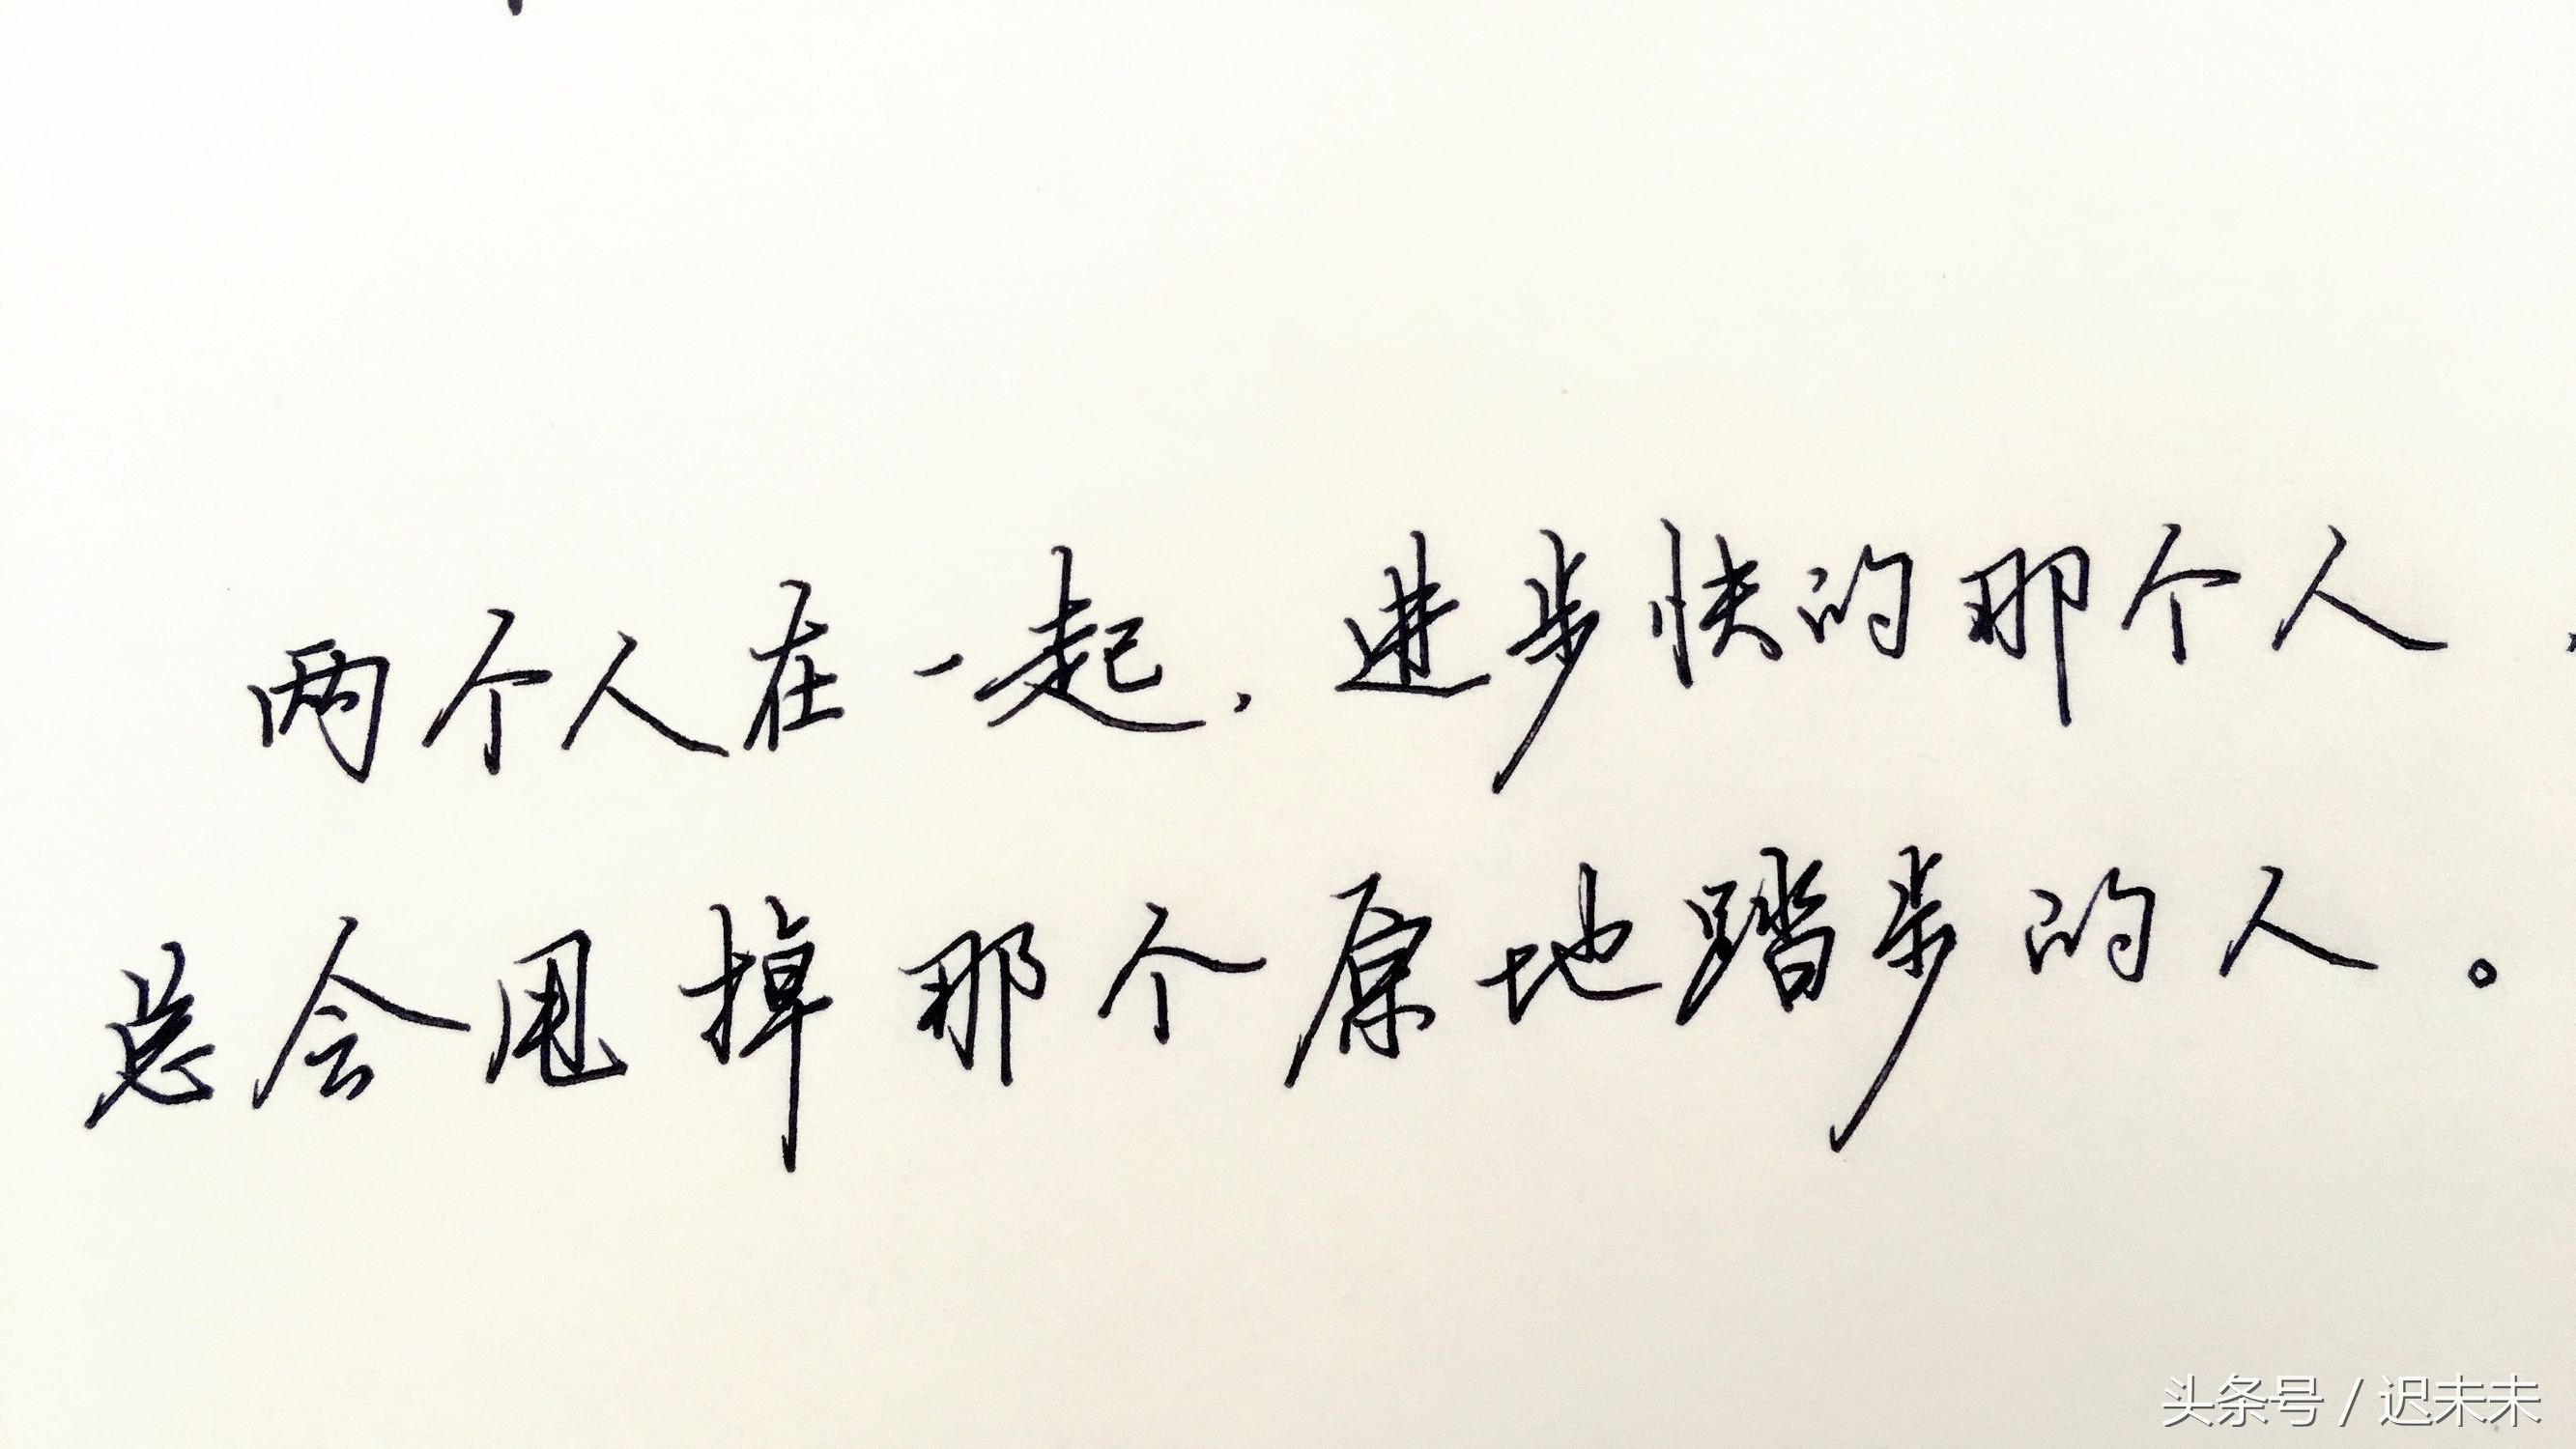 两个人在一起，进步快的那个人，
总会甩掉那个原地踏步的人。
头条号 / 迟未未